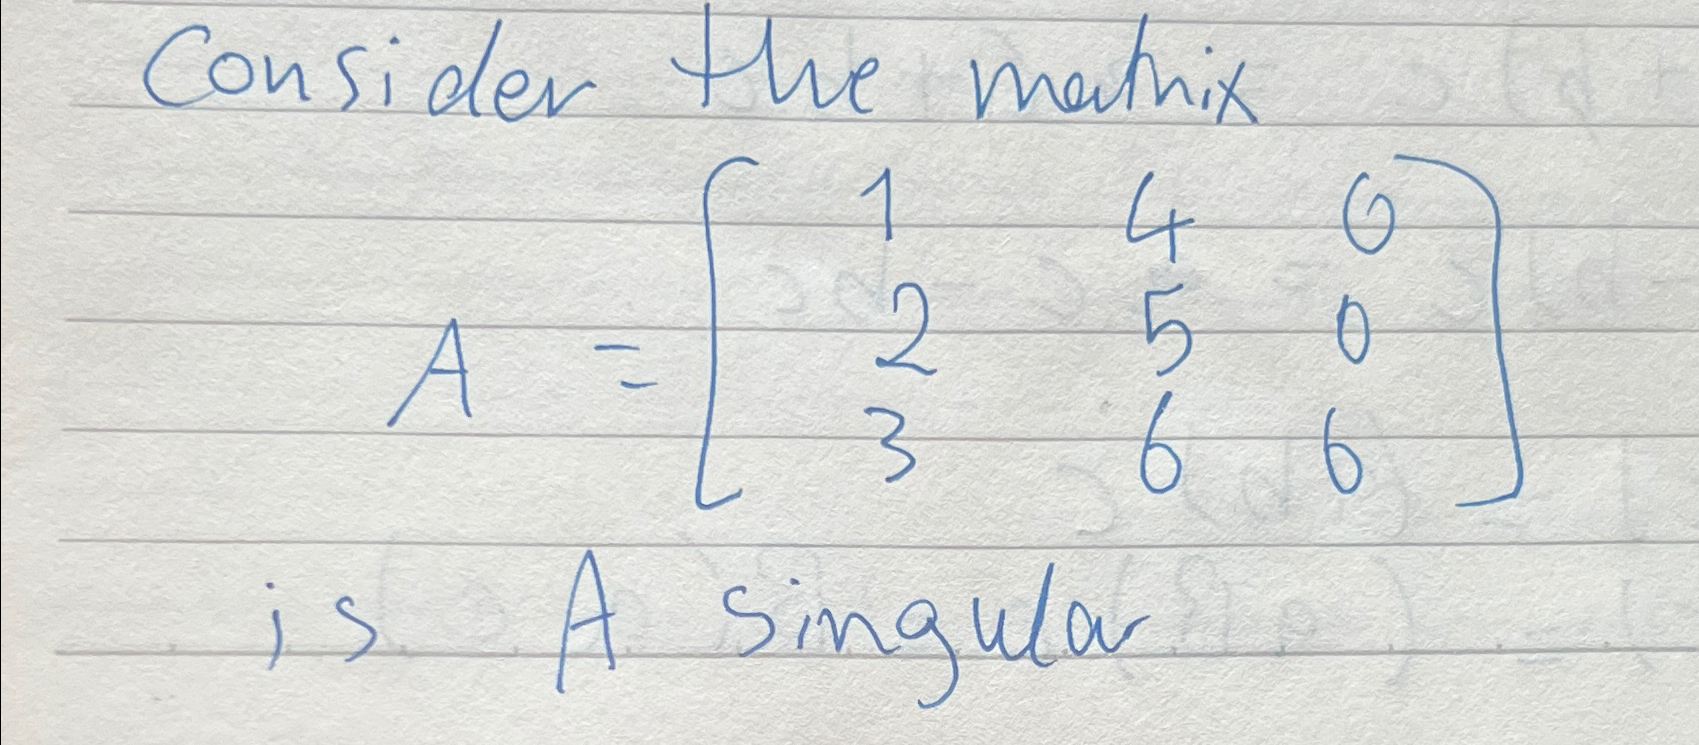 Consider the matrix
A = [ 1 4 0
2 5 0
3 6 6 ]
is A singular